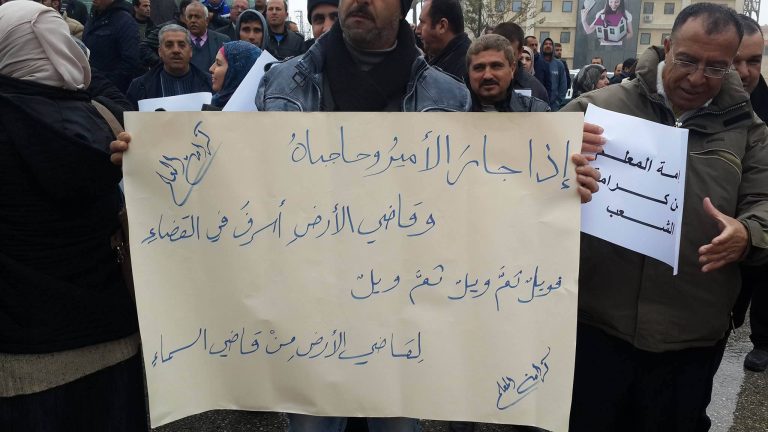 كرامة المعلم
إذا جارَ الأميرُ وحاجباهُ
وقاضي الأرضِ أسرفَ في القضاءِ
فويلٌ ثمَّ ويلٌ ثمَّ ويلٌ
لقاضي الأرضِ مِنْ قاضي السماءِ
كرامة المعلم
امة المعلم
ن كرامة
الشعب